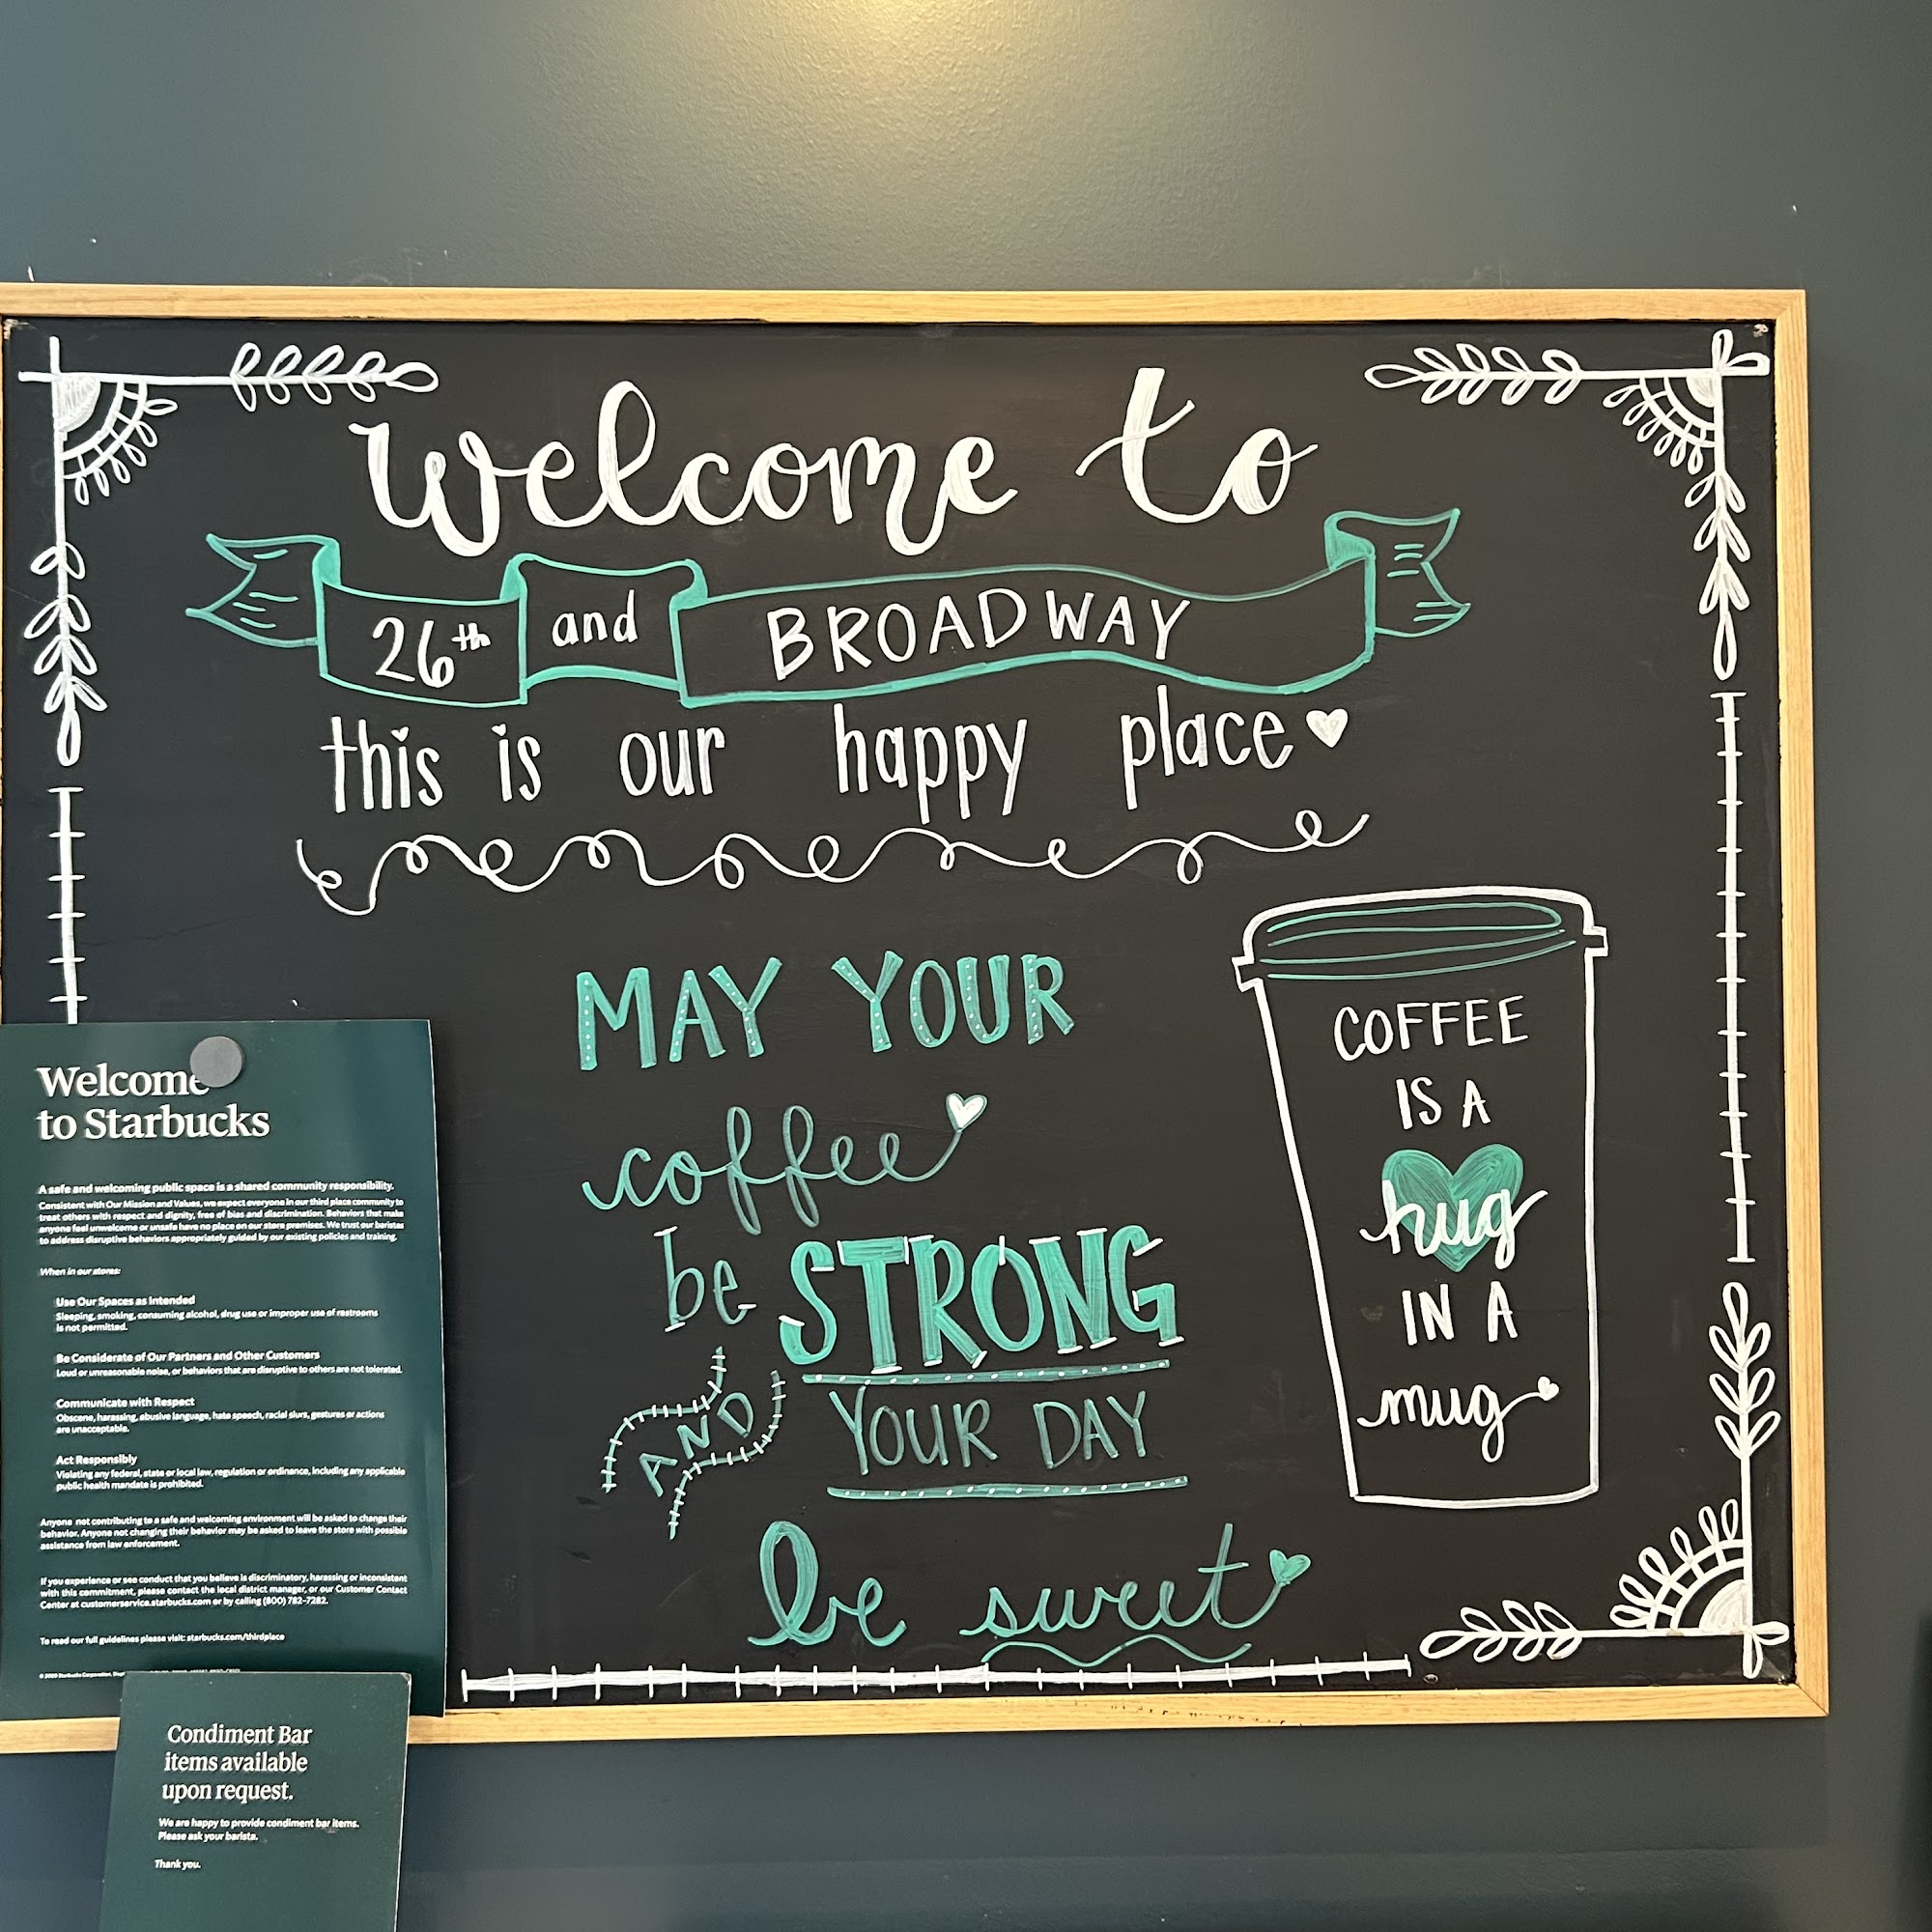 welcome to
26th and BROADWAY
this is our happy place
MAY YOUR
coffee
be STRONG
AND YOUR DAY
be sweet
COFFEE
IS A
hug
IN A
mug
Welcome
to Starbucks
A safe and welcoming public space is a shared community responsibility.
Consistent with Our Mission and Values, we expect everyone in our third place community to
treat others with respect and dignity, free of bias and discrimination. Behaviors that make
anyone feel unwelcome or unsafe have no place on our store premises. We trust our baristas
to address disruptive behaviors appropriately guided by our existing policies and training.
When in our stores:
Use Our Spaces as Intended
Sleeping, smoking, consuming alcohol, drug use or improper use of restrooms
is not permitted.
Be Considerate of Our Partners and Other Customers
Loud or unreasonable noise, or behaviors that are disruptive to others are not tolerated.
Communicate with Respect
Obscene, harassing, abusive language, hate speech, racial slurs, gestures or actions
are unacceptable.
Act Responsibly
Violating any federal, state or local law, regulation or ordinance, including any applicable
public health mandate is prohibited.
Anyone not contributing to a safe and welcoming environment will be asked to change their
behavior. Anyone not changing their behavior may be asked to leave the store with possible
assistance from law enforcement.
If you experience or see conduct that you believe is discriminatory, harassing or inconsistent
with this commitment, please contact the local district manager, or our Customer Contact
Center at customerservice.starbucks.com or by calling (800) 782-7282.
To read our full guidelines please visit: starbucks.com/thirdplace
Starbucks Corporation.
Condiment Bar
items available
upon request.
We are happy to provide condiment bar items.
Please ask your barista.
Thank you.